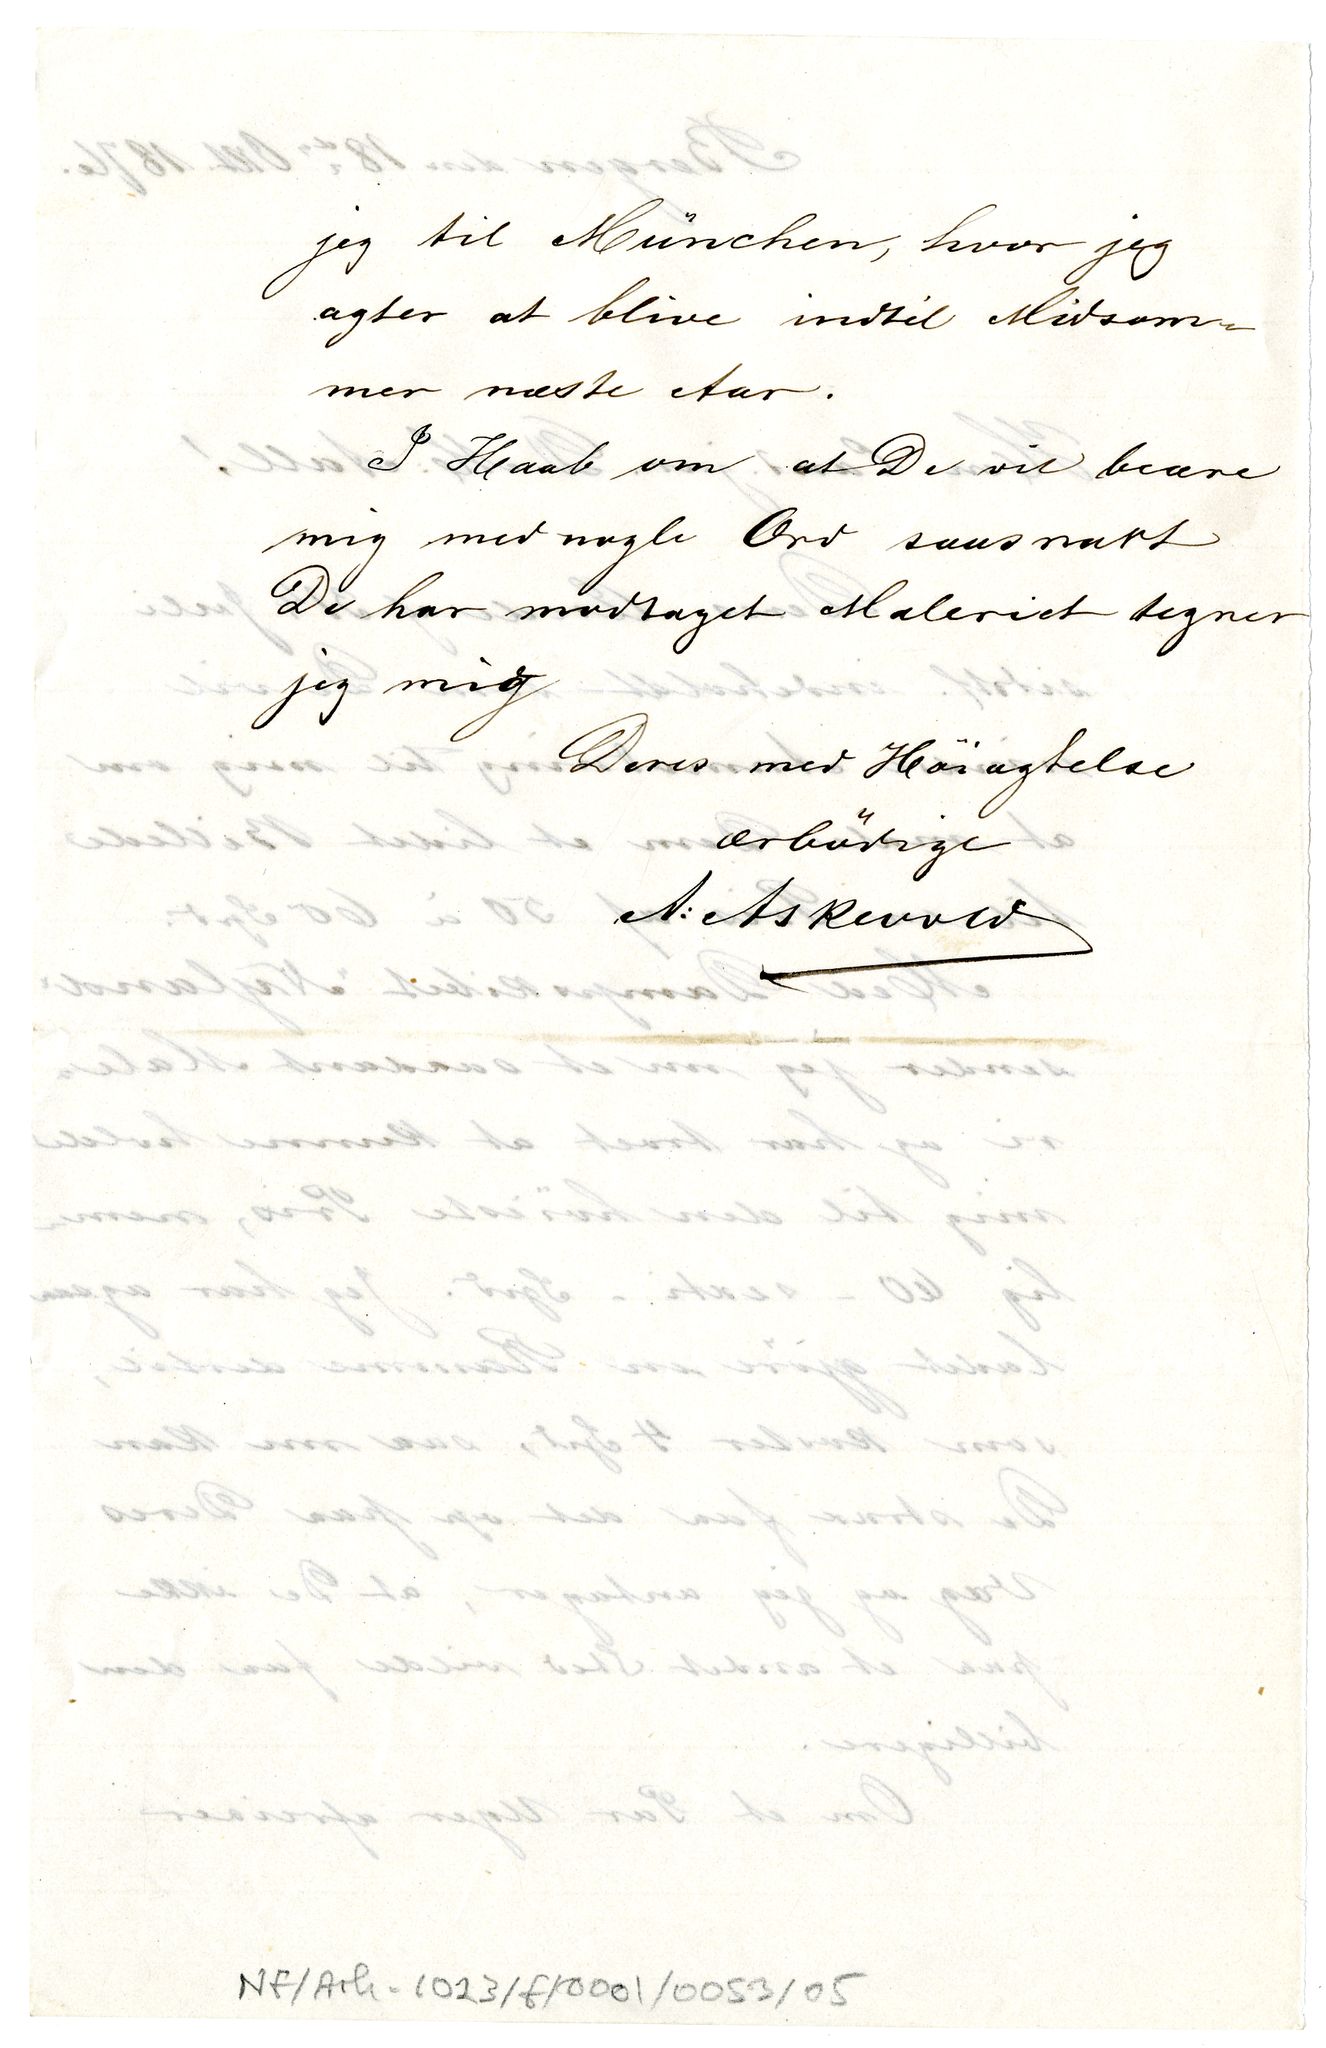 jeg til München, hvor jeg
agter at blive indtil Midsom-
mer næste Aar.
I Haab om at De vil beære
mig med nogle Ord saasnart
De har modtaget Maleriet tegner
jeg mig
Deres med Höiagtelse
ærbödige
A: Askevold
NF/Ark-1023/f/0001/0053/05